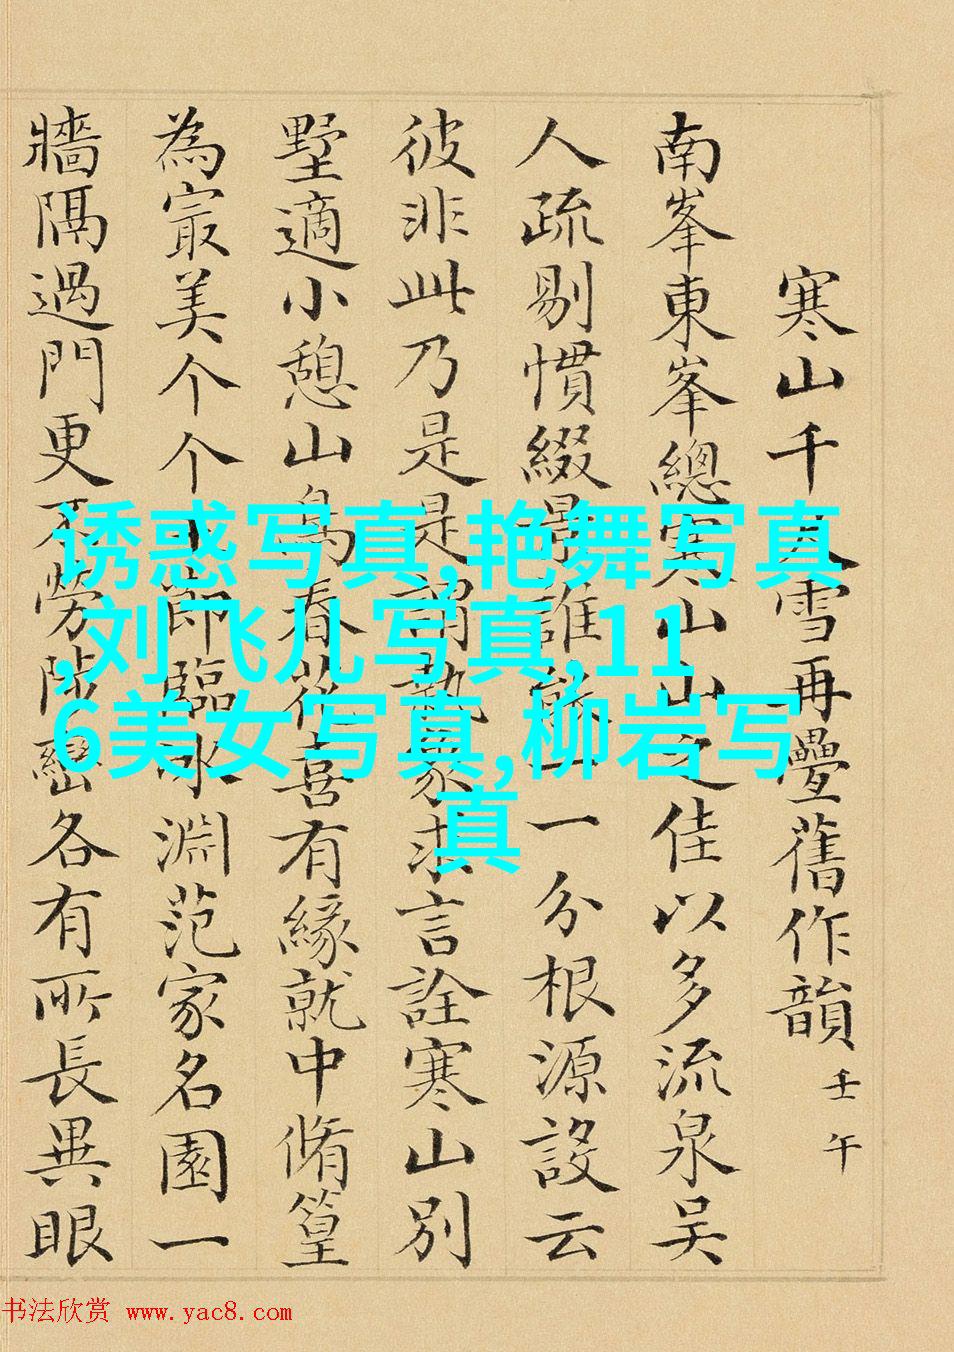 寒山千尺雪再疊舊作韻 壬午
南峯東峯總寒山山之佳以多流泉吴
人疏剔慣綴景誰能一一分根源設云
彼非此乃是是謂執象求言詮寒山別
墅適小憩山鳥春花喜有緣就中脩篁
為最美个个節臨水淵范家名園一
牆隔過門更不勞陟巒各有所長異眼
诱惑写真,艳舞写真
,刘飞儿写真,11
6美女写真,柳岩写
真
书法欣赏 www.yac8.com